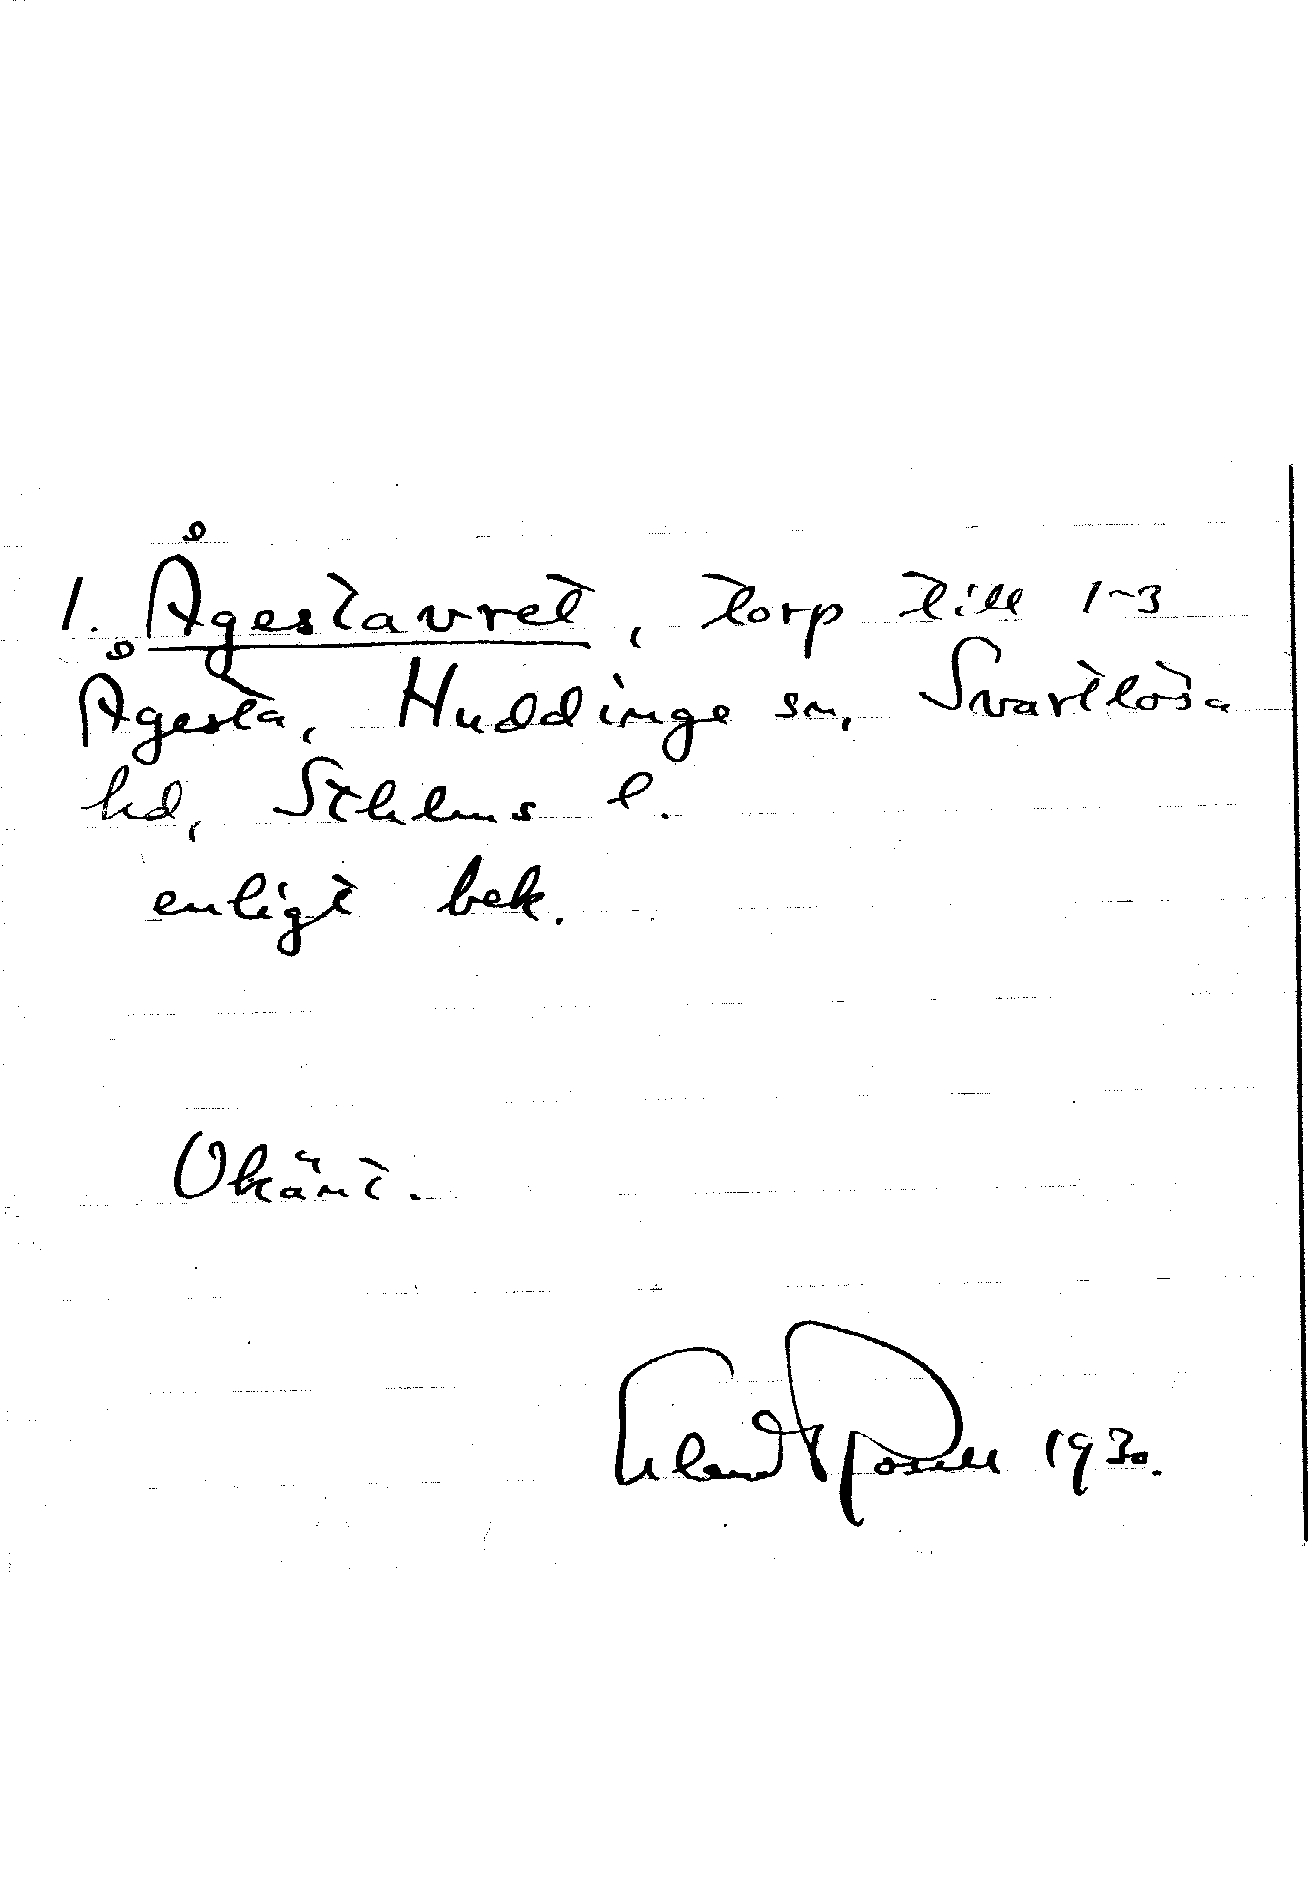 1. Ågestavret, torp till 1-3
Ågesta, Huddinge sn, Svartlösa
hd, Sthlms l.
enligt bek.
Okänt.
Erland Rosell 1930.